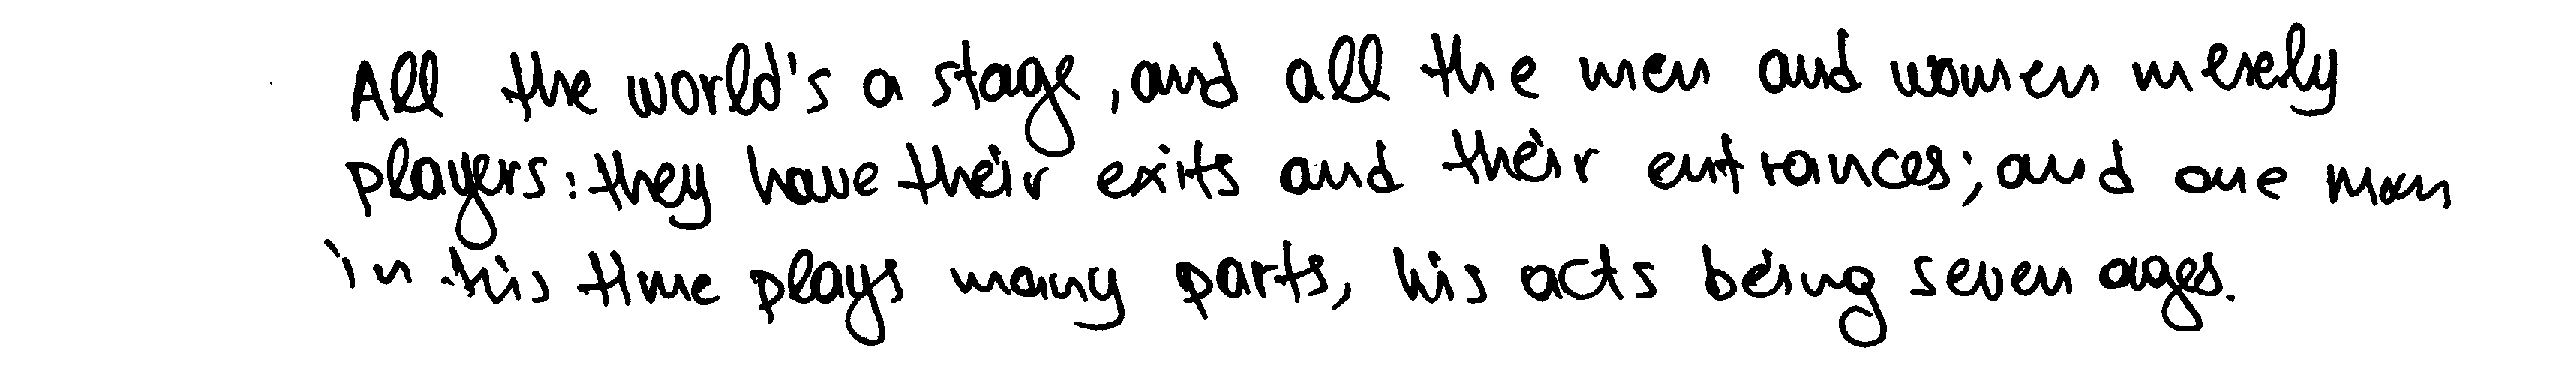 All the world's a stage, and all the men and women merely
players: they have their exits and their entrances; and one man
in this time plays many parts, his acts being seven ages.